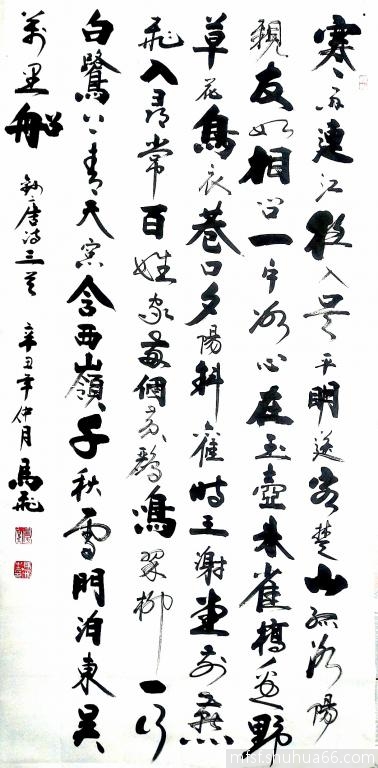 寒雨連江夜入吳平明送客楚山孤洛陽
親友如相问一片冰心在玉壺朱雀橋邊野
草花烏衣巷口夕陽斜舊時王謝堂前燕
飛入尋常百姓家兩個黃鸝鳴翠柳一行
白鷺上青天窗含西嶺千秋雪門泊東吳
萬里船 錄唐詩三首 辛丑年仲月 馬飛
mfsf.shuhua66.com